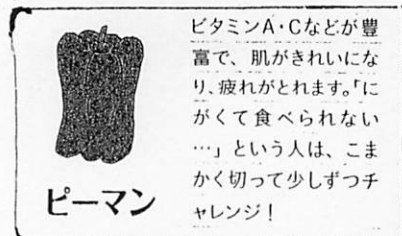 ビタミンA・Cなどが豊
富で、肌がきれいにな
り、疲れがとれます。「に
がくて食べられない
…」という人は、こま
かく切って少しずつチ
ャレンジ！
ピーマン